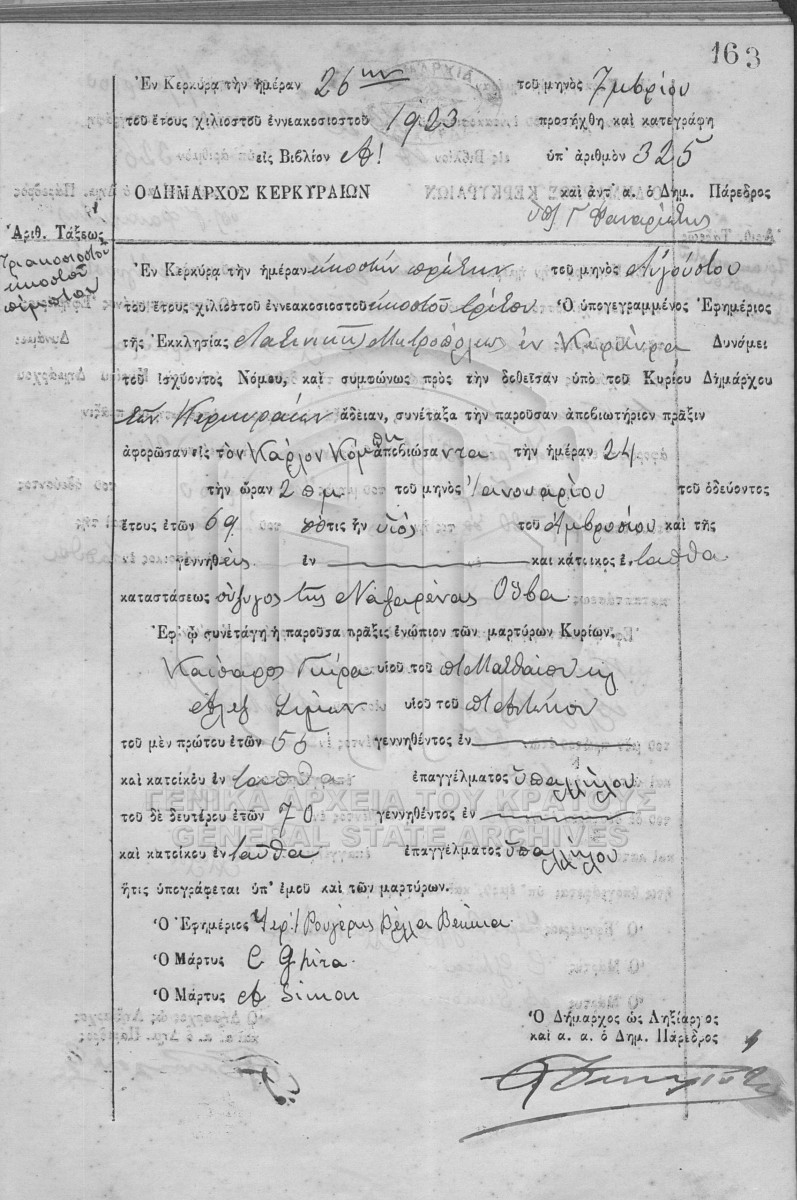 163
Ἐν Κερκύρᾳ τὴν ἡμέραν 26ην τοῦ μηνὸς 7μβρίου
τοῦ ἔτους χιλιοστοῦ ἐννεακοσιοστοῦ 1923 προσήχθη καὶ κατεγράφη
εἰς Βιβλίον Α! ὑπ' ἀριθμὸν 325
Ὁ ΔΗΜΑΡΧΟΣ ΚΕΡΚΥΡΑΙΩΝ καὶ ἀντ' α. ὁ Δημ. Πάρεδρος
Ἀριθ. Τάξεως
Τριακοσιοστοῦ
εἰκοστοῦ
πέμπτου
Ἐν Κερκύρᾳ τὴν ἡμέραν εἰκοστὴν πρώτην τοῦ μηνὸς Αὐγούστου
τοῦ ἔτους χιλιοστοῦ ἐννεακοσιοστοῦ εἰκοστοῦ τρίτου Ὁ ὑπογεγραμμένος Ἐφημέριος
τῆς Ἐκκλησίας Λατινικῆς Μητροπόλεως ἐν Κερκύρᾳ Δυνάμει
τοῦ ἰσχύοντος Νόμου, καὶ συμφώνως πρὸς τὴν δοθεῖσαν ὑπὸ τοῦ Κυρίου Δημάρχου
τῶν Κερκυραίων ἄδειαν, συνέταξα τὴν παροῦσαν ἀποβιωτήριον πρᾶξιν
ἀφορῶσαν εἰς τὸν Κάρλον ἀποβιώσαντα τὴν ἡμέραν 24
τὴν ὥραν 2 πμ. τοῦ μηνὸς Ἰανουαρίου τοῦ ὁδεύοντος
ἔτους ἐτῶν 69 ὅστις ἦν υἱὸς τοῦ Ἀμβροσίου καὶ τῆς
γεννηθεὶς ἐν καὶ κάτοικος ἐνταῦθα
καταστάσεως σύζυγος τῆς Ναζαρένας Οὔβα
Ἐφ' ᾧ συνετάγη ἡ παροῦσα πρᾶξις ἐνώπιον τῶν μαρτύρων Κυρίων.
Καίσαρος Γκίρα υἱοῦ τοῦ π Ματθαίου κ
Ἀλεξ Σιμων υἱοῦ τοῦ π Ἀντωνίου
τοῦ μὲν πρώτου ἐτῶν 55 γεννηθέντος ἐν
καὶ κατοίκου ἐνταῦθα ἐπαγγέλματος ὑπαλλήλου
ΓΕΝΙΚΑ ΑΡΧΕΙΑ ΤΟΥ ΚΡΑΤΟΥΣ
τοῦ δὲ δευτέρου ἐτῶν 70 γεννηθέντος ἐν
GENERAL STATE ARCHIVES
καὶ κατοίκου ἐνταῦθα ἐπαγγέλματος ὑπαλλήλου
ἥτις ὑπογράφεται ὑπ' ἐμοῦ καὶ τῶν μαρτύρων.
Ὁ Ἐφημέριος Ἱερ.
Ὁ Μάρτυς C Ghira
Ὁ Μάρτυς A Simon
Ὁ Δήμαρχος ὡς Ληξίαρχος
καὶ α. α. ὁ Δημ. Πάρεδρος